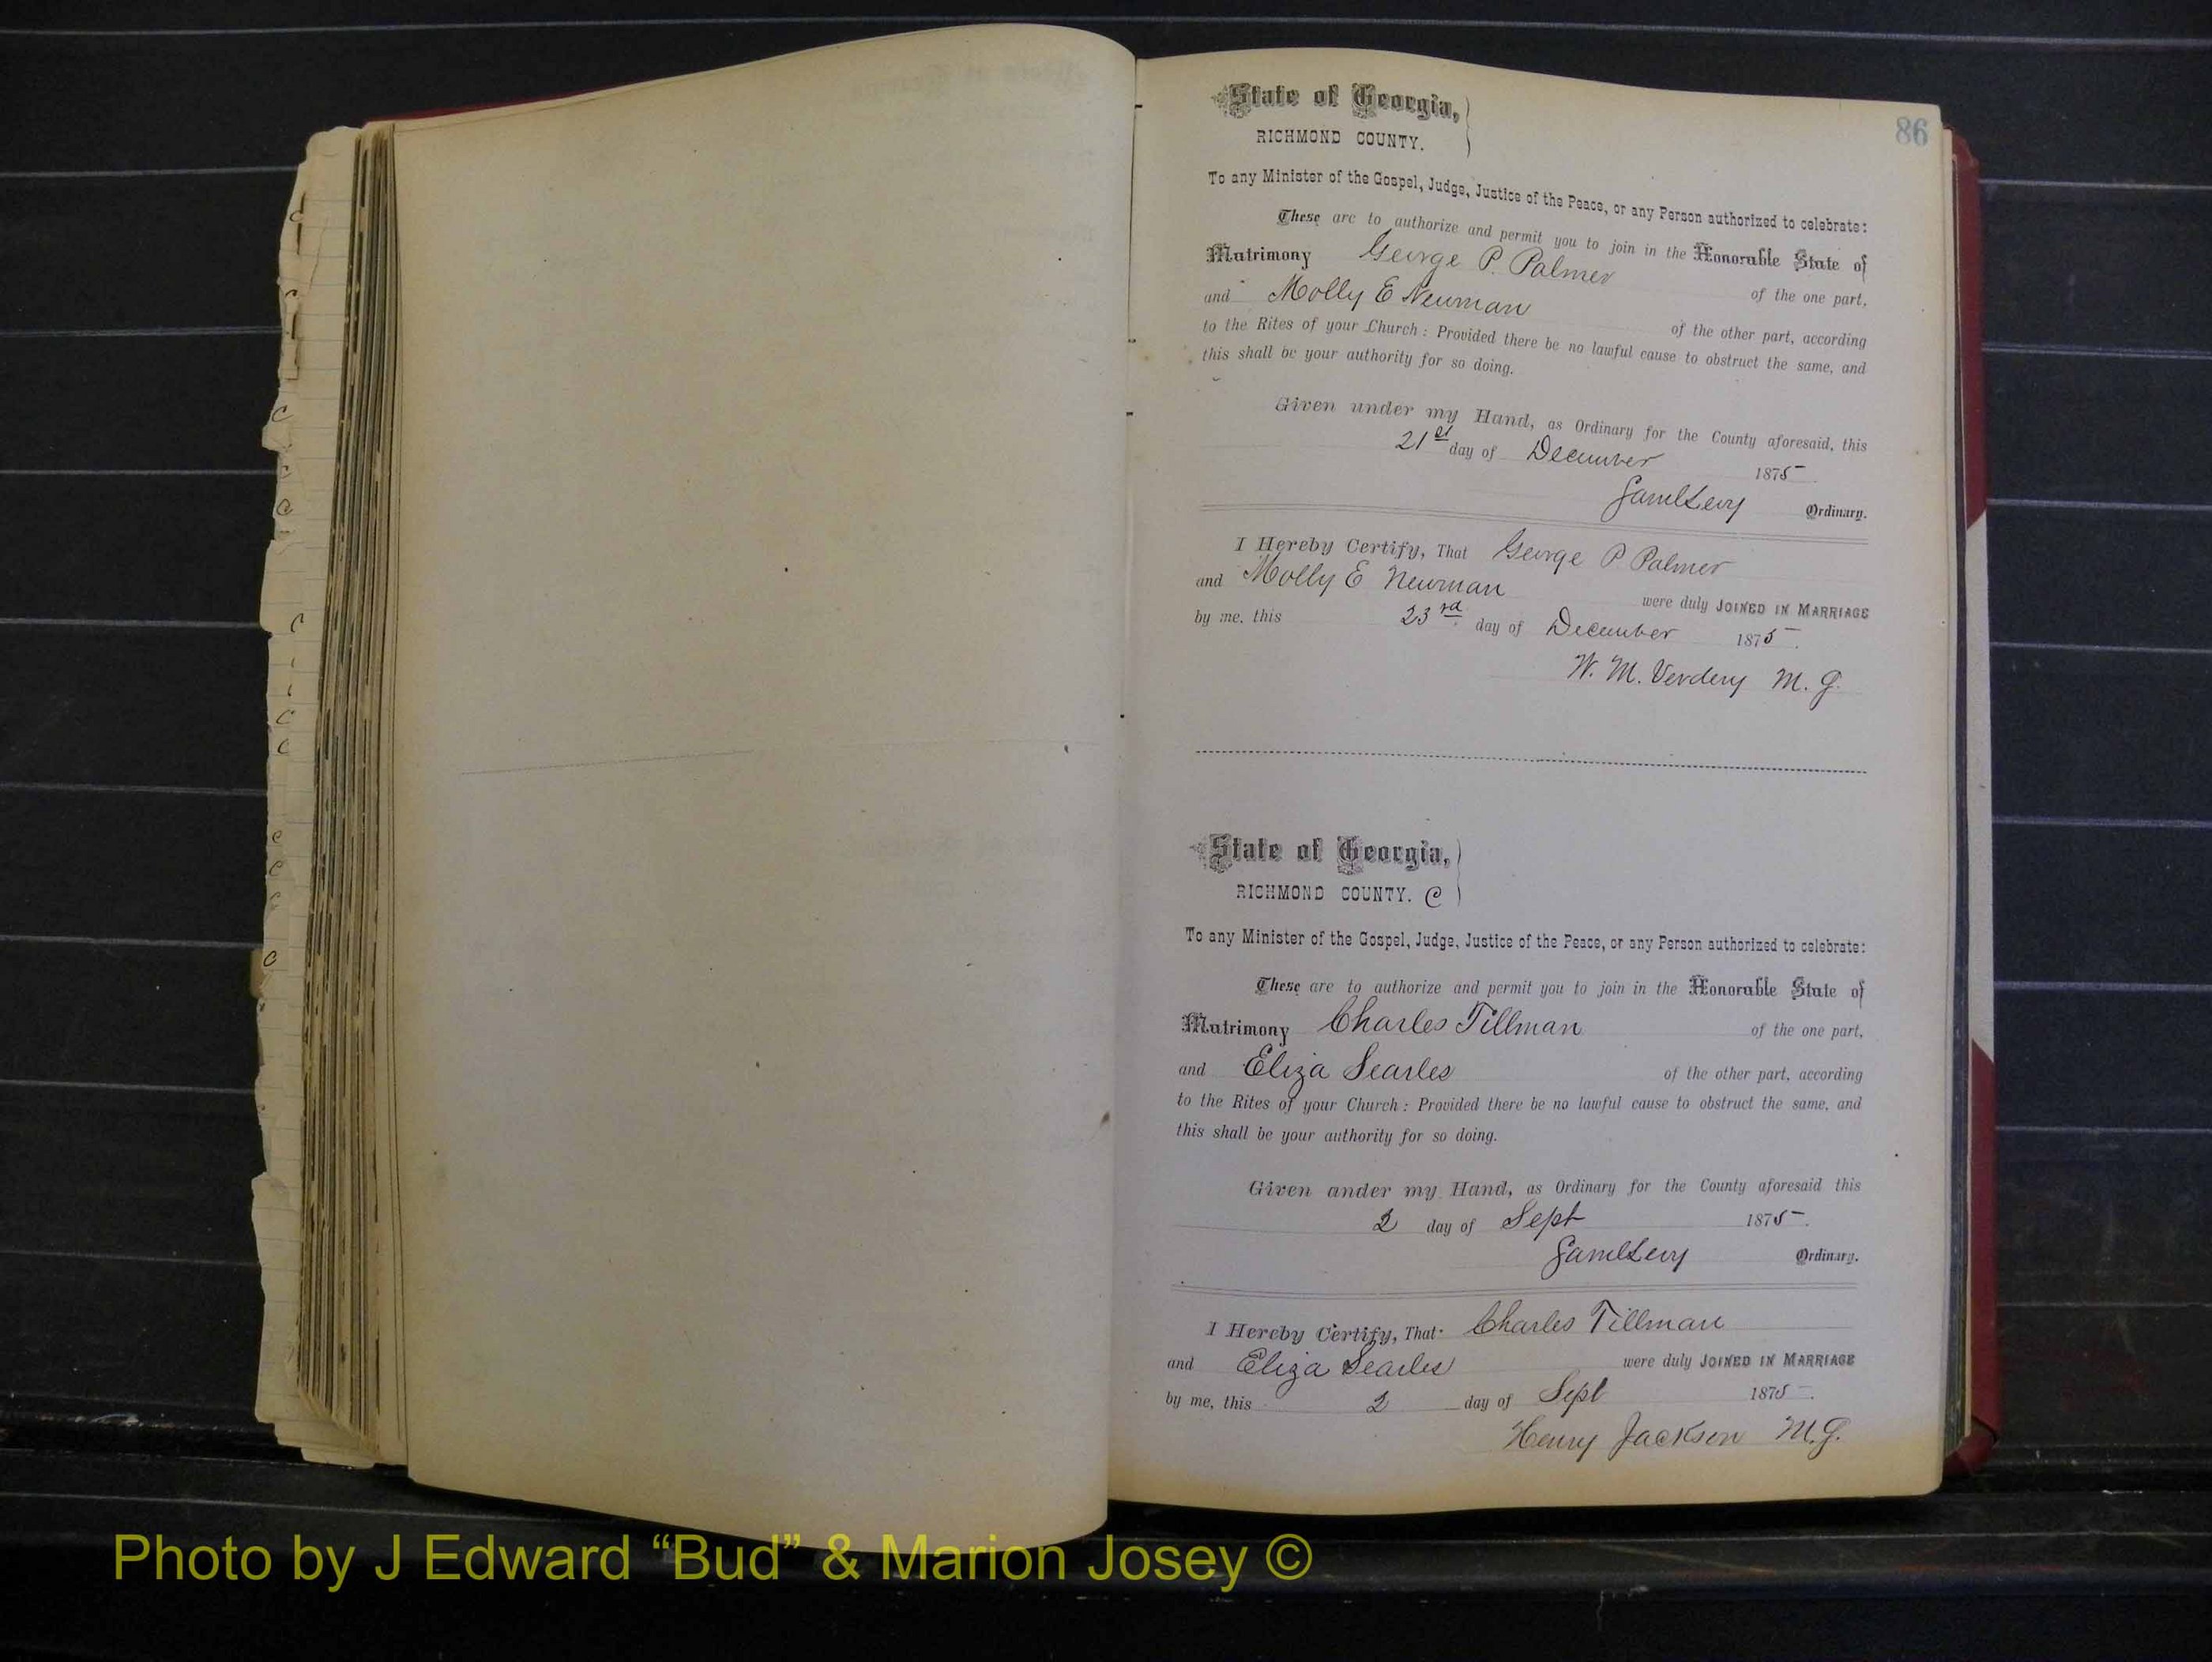 86
State of Georgia,
RICHMOND COUNTY.
To any Minister of the Gospel, Judge, Justice of the Peace, or any Person authorized to celebrate:
These are to authorize and permit you to join in the Honorable State of
Matrimony George P. Palmer of the one part,
and Molly E Newman of the other part, according
to the Rites of your Church: Provided there be no lawful cause to obstruct the same, and
this shall be your authority for so doing.
Given under my Hand, as Ordinary for the County aforesaid, this
21st day of December 1875
Saml Levy Ordinary.
I Hereby Certify, That George P Palmer
and Molly E Newman were duly JOINED IN MARRIAGE
by me, this 23rd day of December 1875.
W. M. Verdery M. G.
State of Georgia,
RICHMOND COUNTY. C
To any Minister of the Gospel, Judge, Justice of the Peace, or any Person authorized to celebrate:
These are to authorize and permit you to join in the Honorable State of
Matrimony Charles Tillman of the one part,
and Eliza Searles of the other part, according
to the Rites of your Church: Provided there be no lawful cause to obstruct the same, and
this shall be your authority for so doing.
Given under my Hand, as Ordinary for the County aforesaid this
2 day of Sept 1875.
Saml Levy Ordinary.
I Hereby Certify, That Charles Tillman
and Eliza Searles were duly JOINED IN MARRIAGE
by me, this 2 day of Sept 1875.
Henry Jackson M.G.
Photo by J Edward “Bud” & Marion Josey ©